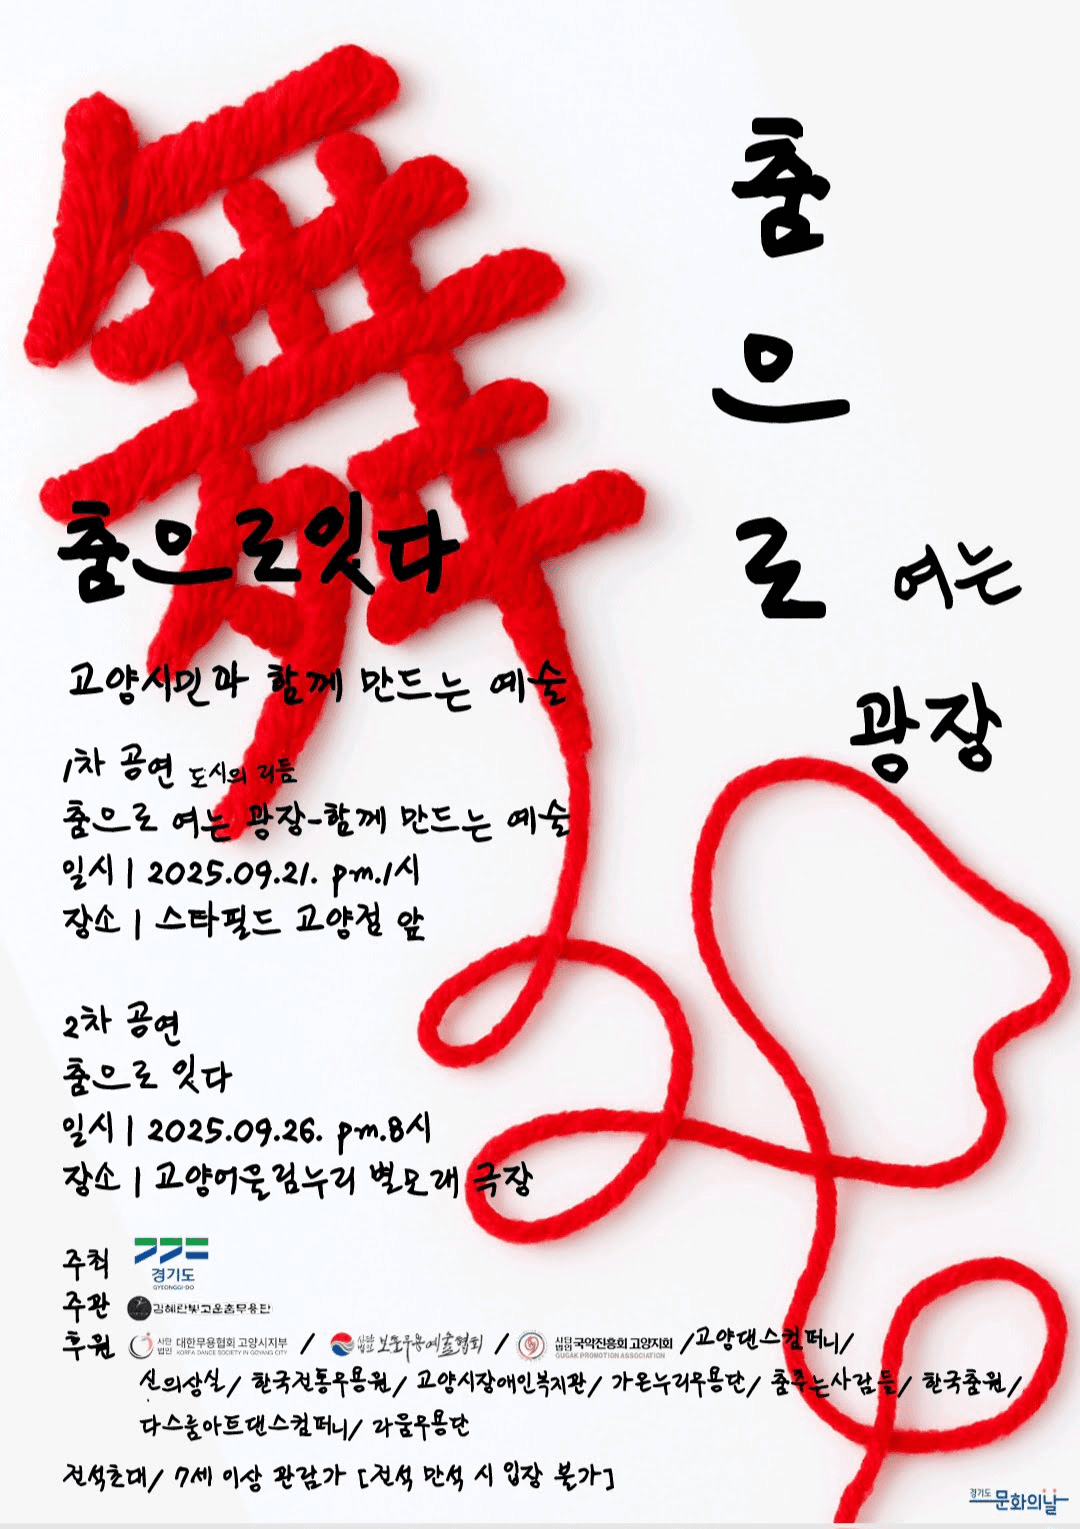 舞
춤
으
로 여는
광장
춤으로잇다
고양시민과 함께 만드는 예술
1차 공연 도시의 리듬
춤으로 여는 광장-함께 만드는 예술
일시 | 2025.09.21. pm.1시
장소 | 스타필드 고양점 앞
2차 공연
춤으로 잇다
일시 | 2025.09.26. pm.8시
장소 | 고양어울림누리 별모래 극장
주최 경기도
GYEONGGI-DO
주관 김혜란빛고운춤무용단
후원 사단법인 대한무용협회 고양시지부 / 사단법인 보훈무용예술협회 / 사단법인 국악진흥회 고양지회 /고양댄스컴퍼니/
KOREA DANCE SOCIETY IN GOYANG CITY
GUGAK PROMOTION ASSOCIATION
신의상실/ 한국전통무용원/ 고양시장애인복지관/ 가온누리무용단/ 춤추는사람들/ 한국춤원/
다스름아트댄스컴퍼니/ 라움무용단
전석초대/ 7세 이상 관람가 [전석 만석 시 입장 불가]
경기도 문화의날